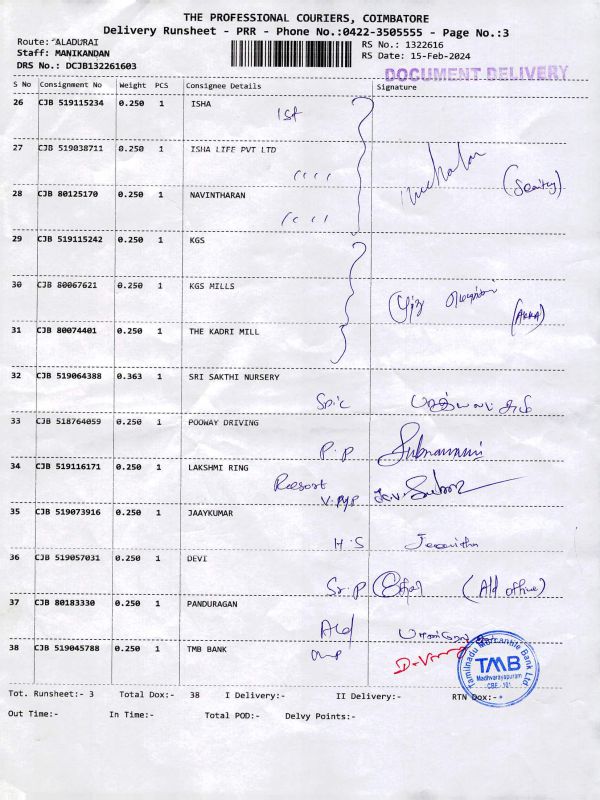 THE PROFESSIONAL COURIERS, COIMBATORE
Delivery Runsheet - PRR - Phone No.:0422-3505555 - Page No.:3
Route: ALADURAI
RS No.: 1322616
Staff: MANIKANDAN
RS Date: 15-Feb-2024
DRS No.: DCJB132261603
DOCUMENT DELIVERY
S No Consignment No Weight PCS Consignee Details Signature
26 CJB 519115234 0.250 1 ISHA
1st
27 CJB 519038711 0.250 1 ISHA LIFE PVT LTD
28 CJB 80125170 0.250 1 NAVINTHARAN
29 CJB 519115242 0.250 1 KGS
30 CJB 80067621 0.250 1 KGS MILLS
(AKKA)
31 CJB 80074401 0.250 1 THE KADRI MILL
32 CJB 519064388 0.363 1 SRI SAKTHI NURSERY
33 CJB 518764059 0.250 1 POOWAY DRIVING
P.P
34 CJB 519116171 0.250 1 LAKSHMI RING
Reesort
35 CJB 519073916 0.250 1 JAAYKUMAR
H.S
36 CJB 519057031 0.250 1 DEVI
Sr.P (Ald office)
37 CJB 80183330 0.250 1 PANDURAGAN
Ald
38 CJB 519045788 0.250 1 TMB BANK
Tamilnadu Mercantile Bank Ltd
TMB
Madhvarayapuram
CBE-101
Tot. Runsheet:- 3 Total Dox:- 38 I Delivery:- II Delivery:- RTN Dox:-
Out Time:- In Time:- Total POD:- Delvy Points:-